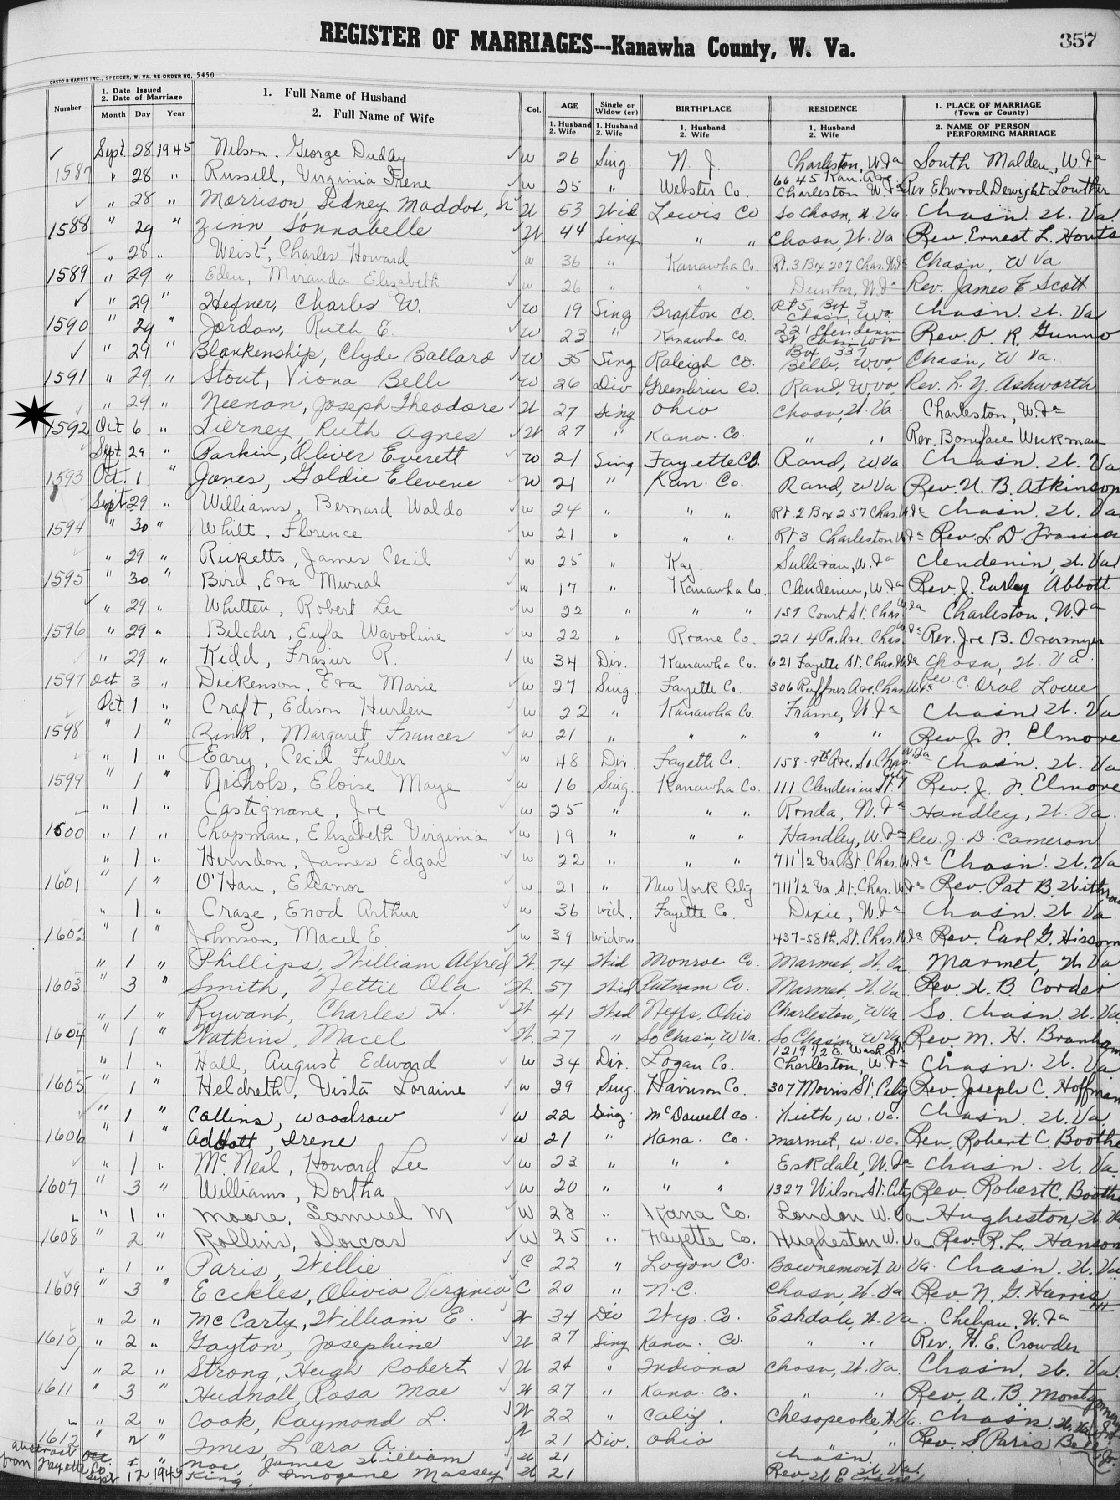 REGISTER OF MARRIAGES---Kanawha County, W. Va.
357
CASTO & HARRIS INC., SPENCER, W. VA. RE-ORDER NO. 5450
Number
1. Date Issued
2. Date of Marriage
Month Day Year
1. Full Name of Husband
2. Full Name of Wife
Col.
AGE
1. Husband
2. Wife
Single or
Widow (er)
1. Husband
2. Wife
BIRTHPLACE
1. Husband
2. Wife
RESIDENCE
1. Husband
2. Wife
1. PLACE OF MARRIAGE
(Town or County)
2. NAME OF PERSON
PERFORMING MARRIAGE
Sept. 28 1945 Nelson, George Dudley w 26 Sing N. J. Charleston, W.Va South Malden, W.Va
1587 " 28 " Russell, Virginia Irene w 25 " Webster Co. 6645 Kan. Ave. Charleston W.Va Rev Elwood Dewight Lowther
" 28 " Morrison Sidney Maddox, Sr W 53 Wid Lewis Co So Chasn, W. Va Chasn. W. Va.
1588 " 29 " Zinn, Sonnabelle W 44 Sing " " Chasn, W. Va Rev. Ernest L. Houts
" 28 " Weist, Charles Howard w 36 " Kanawha Co. Rt. 3 Box 207 Chas. W.Va Chasn, W Va
1589 " 29 " Eden, Miranda Elizabeth w 26 " " " Dunbar, W.Va Rev. James E Scott
" 29 " Hefner, Charles W. W 19 Sing Braxton Co. Rt 5 Box 3 Chasn. W. Va
1590 " 29 " Jordan, Ruth E. W 23 " Kanawha Co. 221 Clendenin St Rev O R Gunno
" 29 " Blankenship, Clyde Ballard W 35 Sing Raleigh Co. Box 337 Belle, W.Va Chasn, W Va.
1591 " 29 " Stout, Viona Belle W 26 Div Greenbrier Co. Rand, W.Va Rev. L. Y. Ashworth
" 29 " Neenan, Joseph Theodore W 27 Sing Ohio Chasn, W. Va Charleston, W.Va
1592 Oct 6 " Tierney, Ruth Agnes W 27 " Kana. Co. " " Rev. Boniface Weckman
Sept 29 " Parkin, Oliver Everett W 21 Sing Fayette Co. Rand, W Va Chasn. W. Va
1593 Oct. 1 " Jones, Goldie Elevene W 21 " Kan. Co. Rand, W Va Rev. N. B. Atkinson
Sept 29 " Williams, Bernard Waldo w 24 " " " Rt 2 Box 257 Chas. W.Va Chasn. W. Va
1594 " 30 " Whitt, Florence w 21 " " " Rt 3 Charleston W.Va Rev L. D
" 29 " Ricketts, James Cecil w 25 " Ky Sullivan, W.Va Clendenin, W. Va
1595 " 30 " Bird, Eva Murial w 17 " Kanawha Co. Clendenin, W.Va Rev. J. Earley Abbott
" 29 " Whitten, Robert Lee w 22 " " " 157 Court St. Chas W.Va Charleston, W.Va
1596 " 29 " Belcher, Eufa Wavoline w 22 " Roane Co. 221 Chas. W.Va Rev. Joe B. Overmyer
" 29 " Kidd, Frazier R. w 34 Div. Kanawha Co. 621 Fayette St. Chas. W.Va Chasn, W. Va.
1597 Oct 3 " Dickenson, Eva Marie w 27 Sing. Fayette Co. 306 Ruffner Ave. Chas W.Va Rev C. Oral Lowe
Oct 1 " Craft, Edison Hurley w 22 " Kanawha Co. Frame, W.Va Chasn. W. Va
1598 " 1 " Rink, Margaret Frances w 21 " " " " " Rev. J. F. Elmore
" 1 " Eary, Cecil Fuller w 48 Div. Fayette Co. 158-9th Ave. St. Chas. W.Va Chasn. W. Va
1599 " 1 " Nichols, Eloise Maye w 16 Sing. Kanawha Co. 111 Clendenin St. Rev. J. F. Elmore
" 1 " Castegnane, Joe w 25 " " " Ronda, W.Va Handley, W. Va.
1600 " 1 " Chapman, Elizabeth Virginia w 19 " " " Handley, W.Va Rev. J. D. Cameron
" 1 " Herndon, James Edgar w 22 " " " 711 1/2 Va St Chas. W.Va Chasn. W. Va
1601 " 1 " O'Hare, Eleanor w 21 " New York City 711 1/2 Va St. Chas. W.Va Rev. Pat B. Withrow
" 1 " Craze, Enod Arthur w 36 wid. Fayette Co. Dixie, W.Va Chasn. W Va
1602 " 1 " Johnson, Macel E. w 39 widow 437-58th, St. Chas. W.Va Rev. Earl G. Hissom
" 1 " Phillips, William Alfred W. 74 Wid Monroe Co. Marmet, W. Va Marmet, W. Va
1603 " 3 " Smith, Nettie Ola W. 57 Wid Putnam Co. Marmet, W. Va Rev. W. B. Corder
" 1 " Rywant, Charles H. W 41 Wid Neffs, Ohio Charleston, W Va So. Chasn. W. Va
1604 " 1 " Watkins, Macel W. 27 " So Chasn, W Va. So Chasn, W Va. Rev M. H. Branham
" 1 " Hall, August Edward w 34 Div. Logan Co. 1219 1/2 E. Wash. St. Charleston, W.Va Chasn. W. Va
1605 " 1 " Heldreth, Vista Loraine w 29 Sing. Harrison Co. 307 Morris St. City Rev. Joseph C. Hoffman
" 1 " Collins, Woodrow w 22 Sing. McDowell Co. Keith, W. Va. Chasn. W. Va
1606 " 1 " Abbott, Irene w 21 " Kana. Co. Marmet, W. Va. Rev. Robert C. Boothe
" 1 " McNeal, Howard Lee w 23 " " " Eskdale, W.Va Chasn. W. Va.
1607 " 3 " Williams, Dortha w 20 " " " 1327 Wilson St. City Rev. Robert C. Boothe
" 1 " Moore, Samuel M W 28 " Kana Co. London W. Va Hugheston, W. Va
1608 " 2 " Rollins, Dorcas W 25 " Fayette Co. Hugheston W. Va Rev. R. L. Hanson
" 1 " Paris, Willie C 22 " Logan Co. Bownemont W Va. Chasn. W. Va
1609 " 3 " Eckles, Olivia Virginia C 20 " N. C. Chasn. W. Va Rev. N. G. Harris
" 2 " McCarty, William E. W 34 Div Wyo. Co. Eskdale, W. Va. Chelyan, W.Va
1610 " 2 " Gayton, Josephine W 27 Sing Kana. Co. " " Rev. H. E. Crowder
" 2 " Strong, Hugh Robert W 24 " Indiana Chasn, W. Va. Chasn. W. Va.
1611 " 3 " Hudnall, Rosa Mae W 27 " Kana. Co. " " Rev. A. B. Montgomery
" 2 " Cook, Raymond L. W 22 " Calif. Chesapeake, W. Va. Chasn W. Va
1612 " 2 " Imes, Lora A. W 21 Div. Ohio " " Rev. S Paris
abstract from Fayette Co. Oct. 1 " Noe, James William W 21 Chasn.
Sept 12 1945 King, Imogene Massey W 21 Rev.